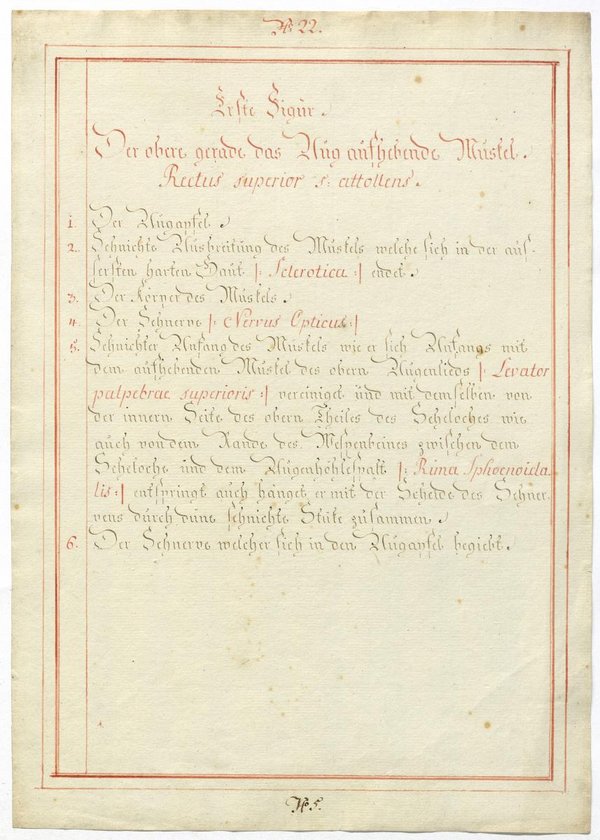 No 22.
Erste Figur.
Der obere gerade das Aug aufhebende Muskel.
Rectus superior s: attollens.
1. Der Augapfel.
2. Sehnichte Ausbreitung des Muskels welche sich in der aus-
sersten harten Haut |: Sclerotica :| endet.
3. Der Körper des Muskels.
4. Der Sehnerve |: Nervus Opticus :|
5. Sehnichter Anfang des Muskels wie er sich Anfangs mit
dem aufhebenden Muskel des obern Augenlieds |: Levator
palpebrae superioris :| vereiniget und mit demselben von
der innern Seite des obern Theiles des Seheloches wie
auch von dem Rande des Wespenbeines zwischen dem
Seheloche und dem Augenhöhlespalt |: Rima Sphoenoida-
lis :| entspringt auch hänget er mit der Scheide des Sehner-
vens durch düne sehnichte Stüke zusammen.
6. Der Sehnerve welcher sich in den Augapfel begiebt.
No 5.